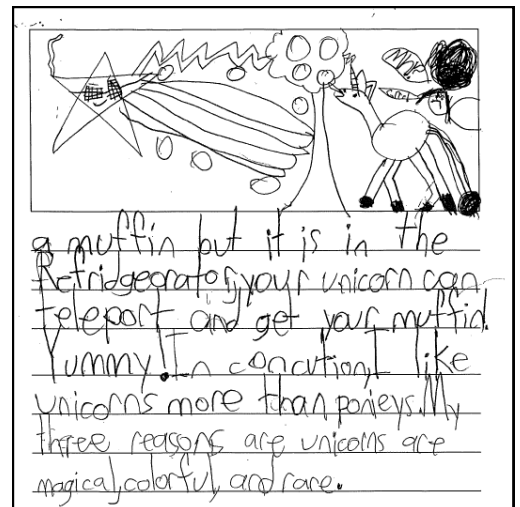 a muffin but it is in the
Refridgeorator, your unicorn can
teleport and get your muffin.
Yummy! In concution, I like
unicorns more than ponieys. My
three reasons are unicorns are
magical, colorful, and rare.